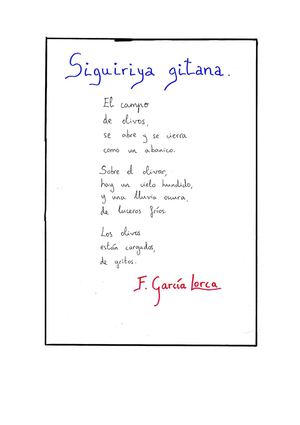 Siguiriya gitana.
El campo
de olivos,
se abre y se cierra
como un abanico.
Sobre el olivar,
hay un cielo hundido,
y una lluvia oscura,
de luceros fríos.
Los olivos
están cargados,
de gritos.
F. García Lorca